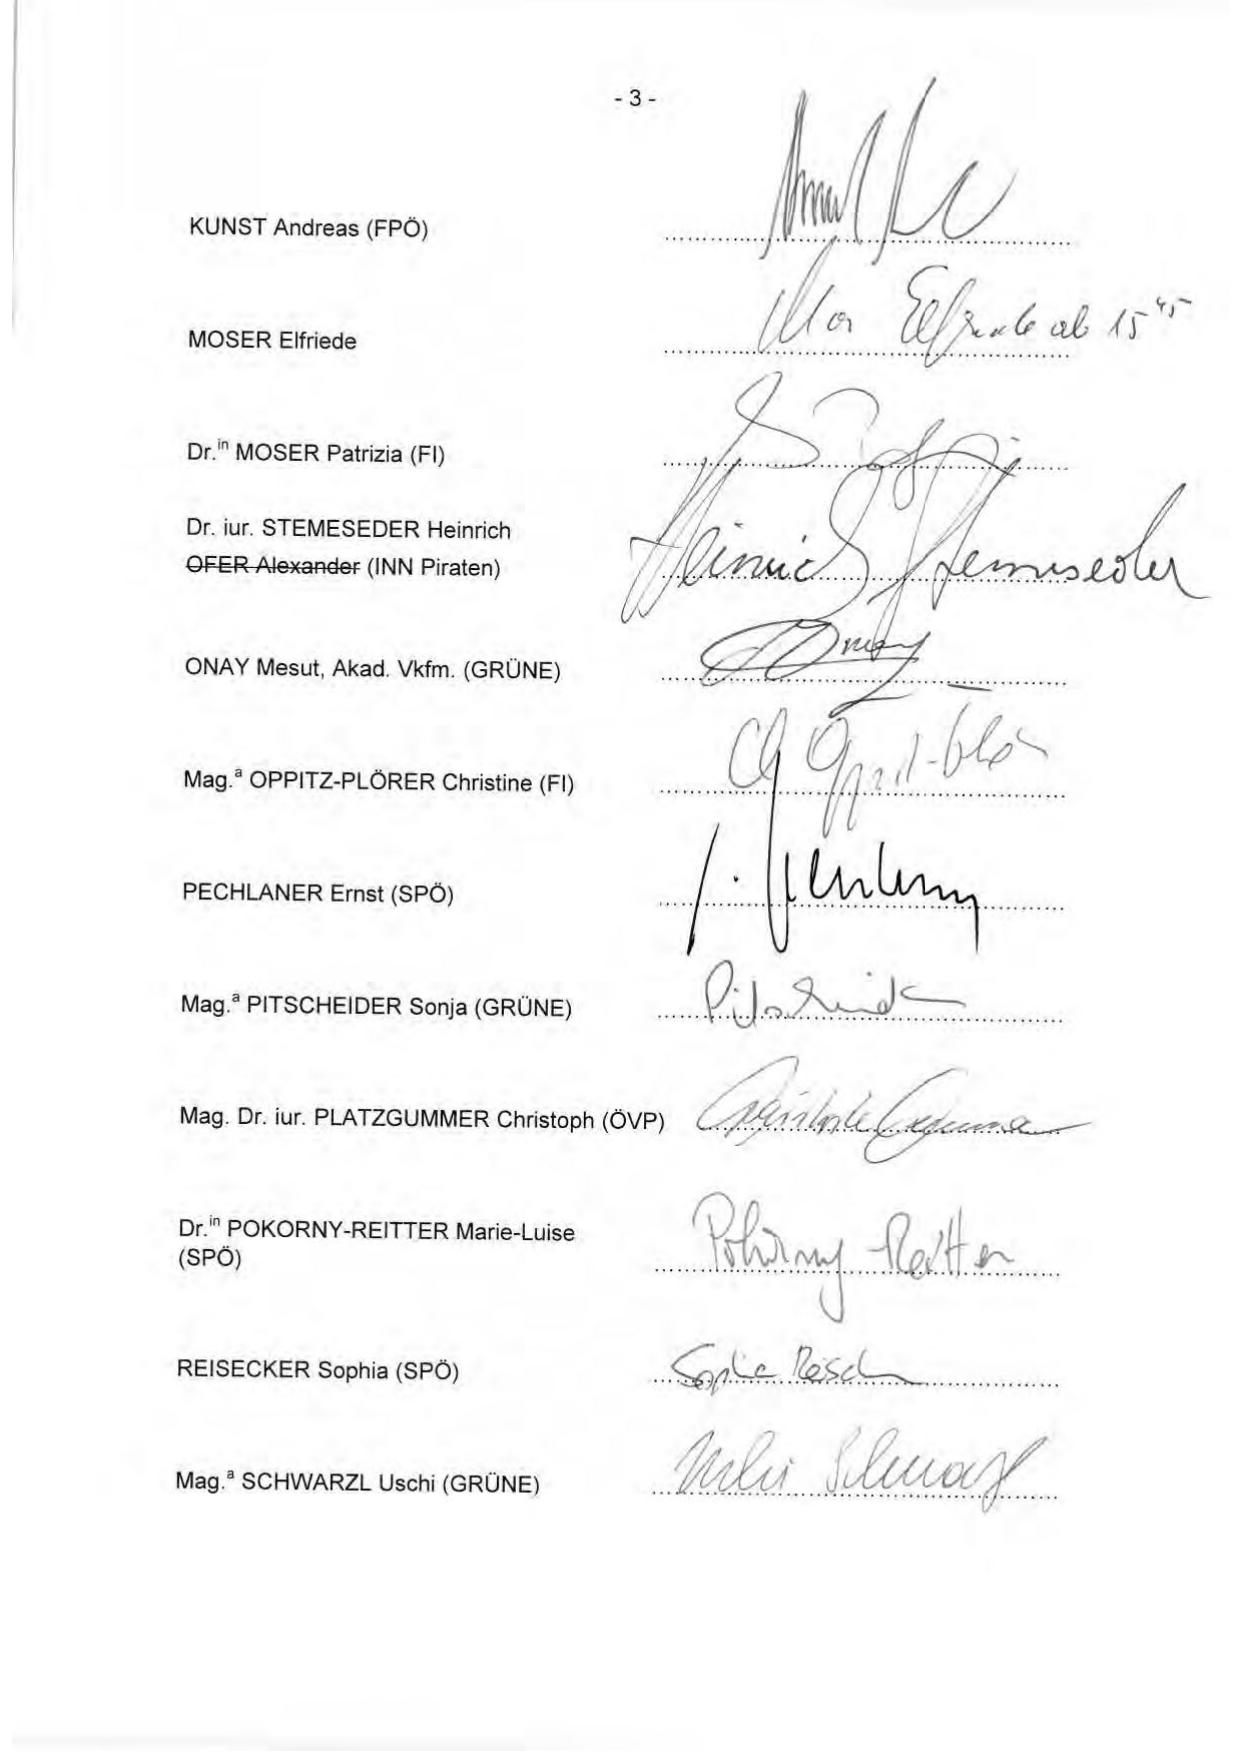 - 3 -
KUNST Andreas (FPÖ)
MOSER Elfriede
Elfriede ab 15⁴⁵
Dr.ⁱⁿ MOSER Patrizia (FI)
Dr. iur. STEMESEDER Heinrich
Heinrich Stemeseder
OFER Alexander (INN Piraten)
ONAY Mesut, Akad. Vkfm. (GRÜNE)
Onay
Mag.ª OPPITZ-PLÖRER Christine (FI)
PECHLANER Ernst (SPÖ)
Mag.ª PITSCHEIDER Sonja (GRÜNE)
Mag. Dr. iur. PLATZGUMMER Christoph (ÖVP)
Dr.ⁱⁿ POKORNY-REITTER Marie-Luise
(SPÖ)
Pokorny-Reitter
REISECKER Sophia (SPÖ)
Sophia
Mag.ª SCHWARZL Uschi (GRÜNE)
Uschi Schwarzl